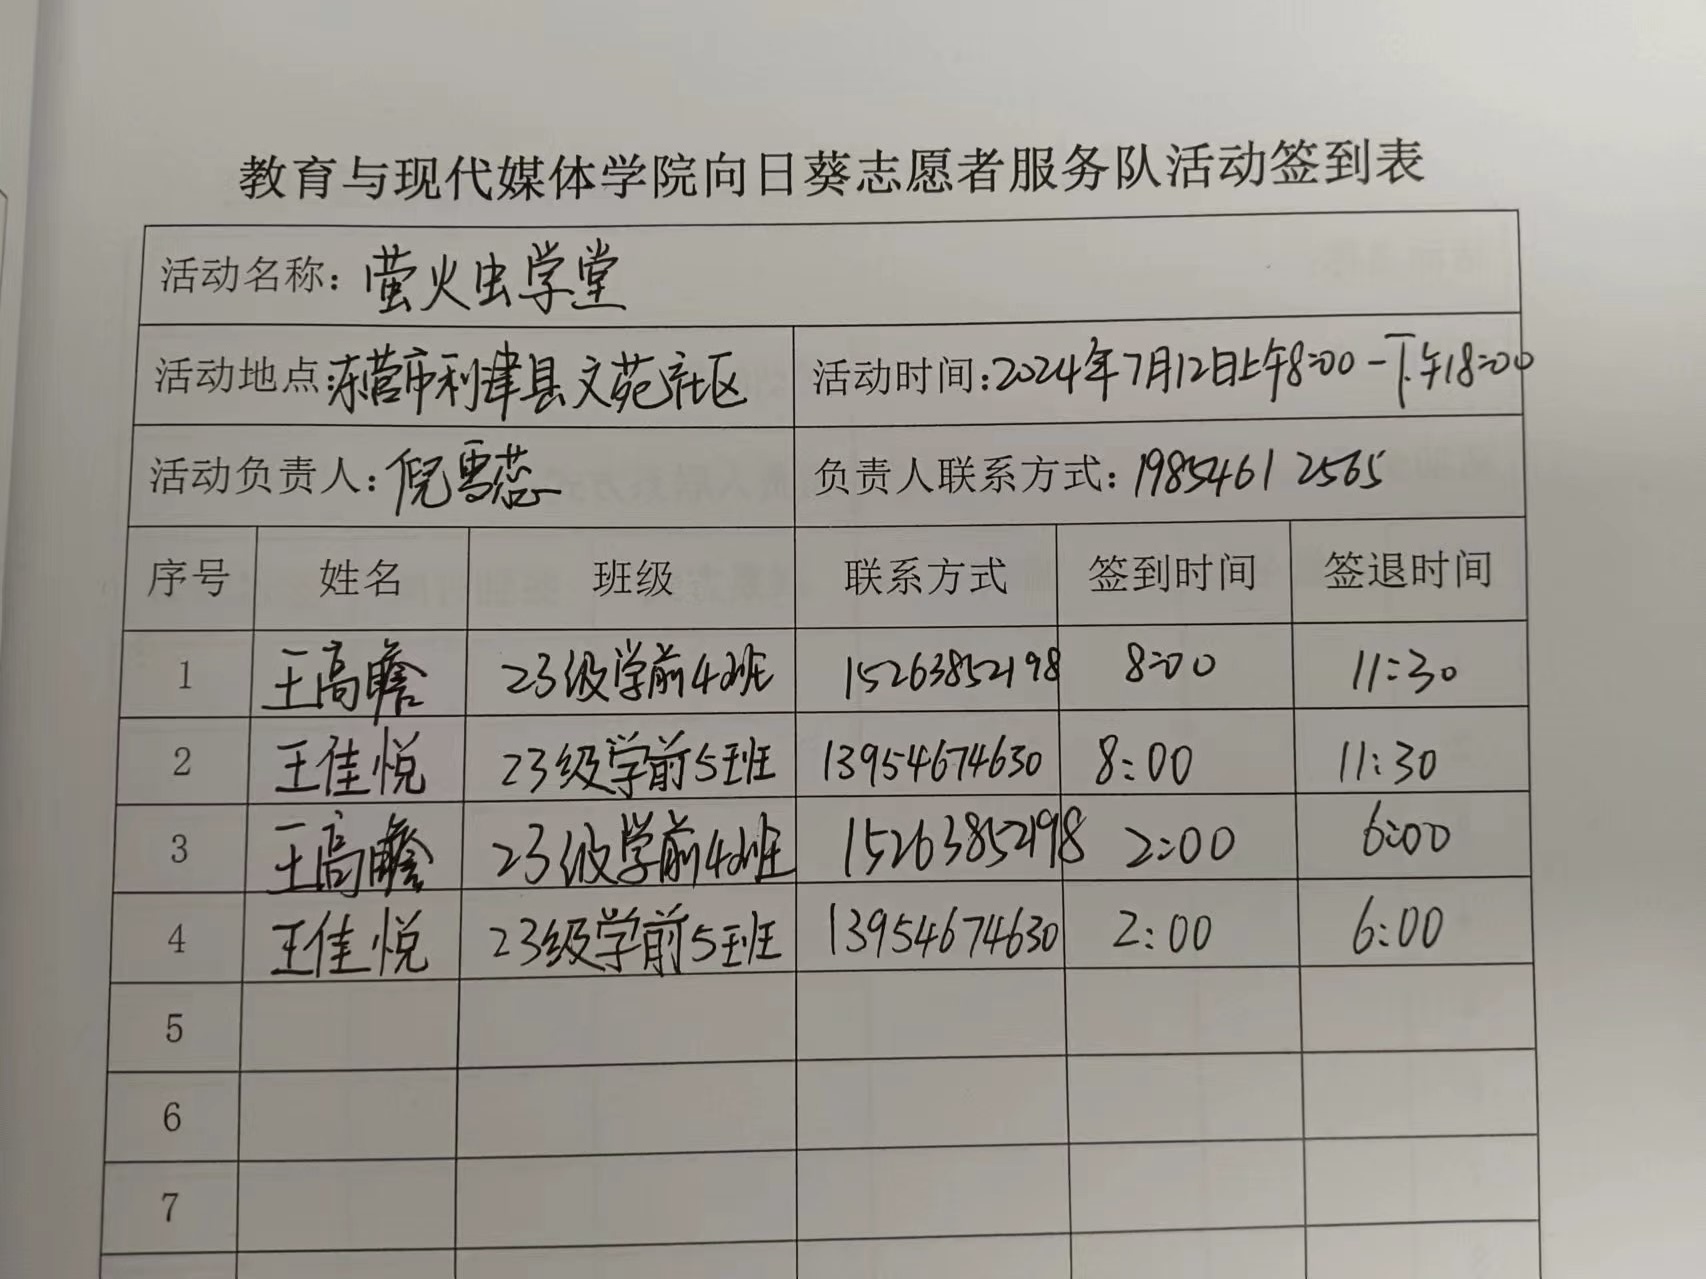 教育与现代媒体学院向日葵志愿者服务队活动签到表
活动名称：萤火虫学堂
活动地点：东营市利津县文苑社区 活动时间：2024年7月12日上午8:00-下午18:00
活动负责人：倪雪蕊 负责人联系方式：19854612565
序号 姓名 班级 联系方式 签到时间 签退时间
1 王高瞻 23级学前4班 15263852198 8:00 11:30
2 王佳悦 23级学前5班 13954674630 8:00 11:30
3 王高瞻 23级学前4班 15263852198 2:00 6:00
4 王佳悦 23级学前5班 13954674630 2:00 6:00
5
6
7